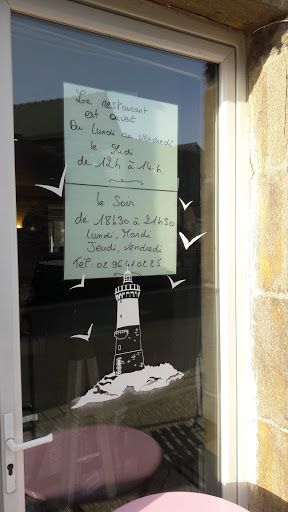 Le restaurant
est ouvert
Du lundi au vendredi
le Midi
de 12h à 14h.
le Soir
de 18h30 à 21h30
Lundi, Mardi
Jeudi, Vendredi
Tél: 02 96 41 02 25